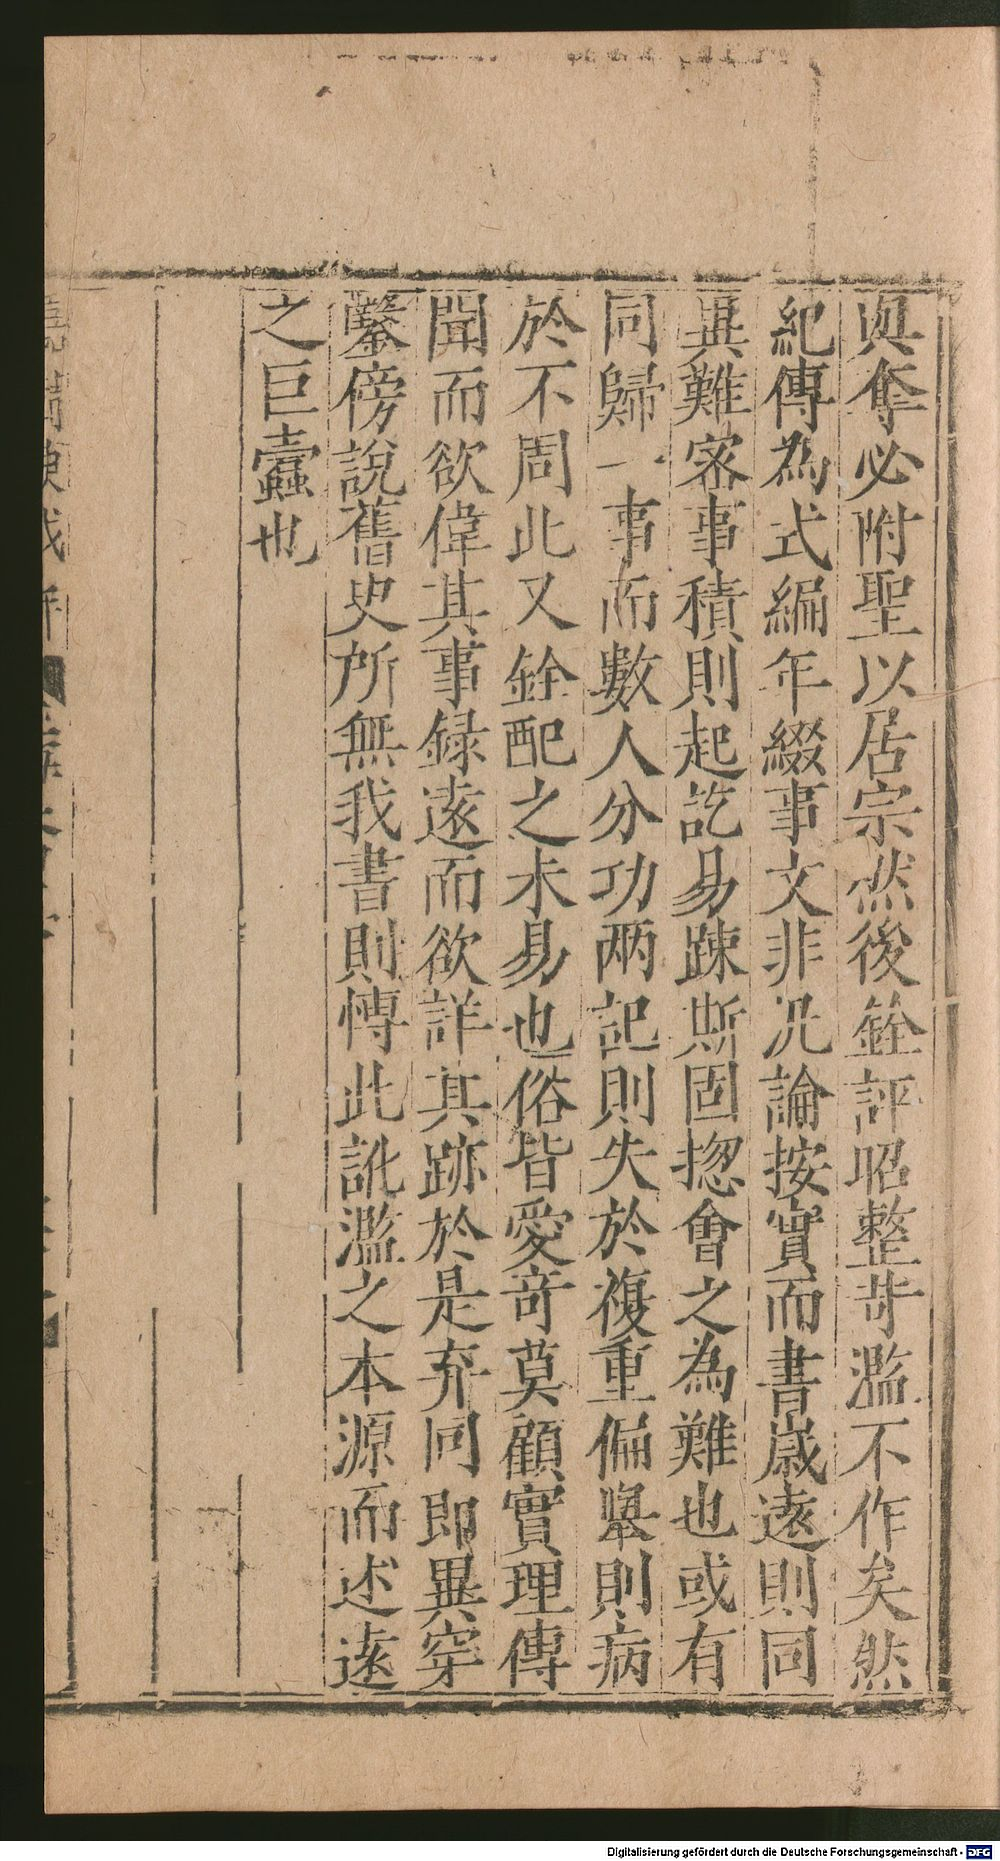 與奪必附聖以居宗然後銓評昭整苛濫不作矣然
紀傳為式編年綴事文非況論按實而書歲遠則同
異難密事積則起訖易踈斯固揔會之為難也或有
同歸一事而數人分功兩記則失於複重偏舉則病
於不周此又銓配之未易也俗皆愛竒莫顧實理傳
聞而欲偉其事録遠而欲詳其跡於是弃同即異穿
鑿傍說舊史所無我書則慱此訛濫之本源而述遠
之巨蠹也
Digitalisierung gefördert durch die Deutsche Forschungsgemeinschaft - DFG